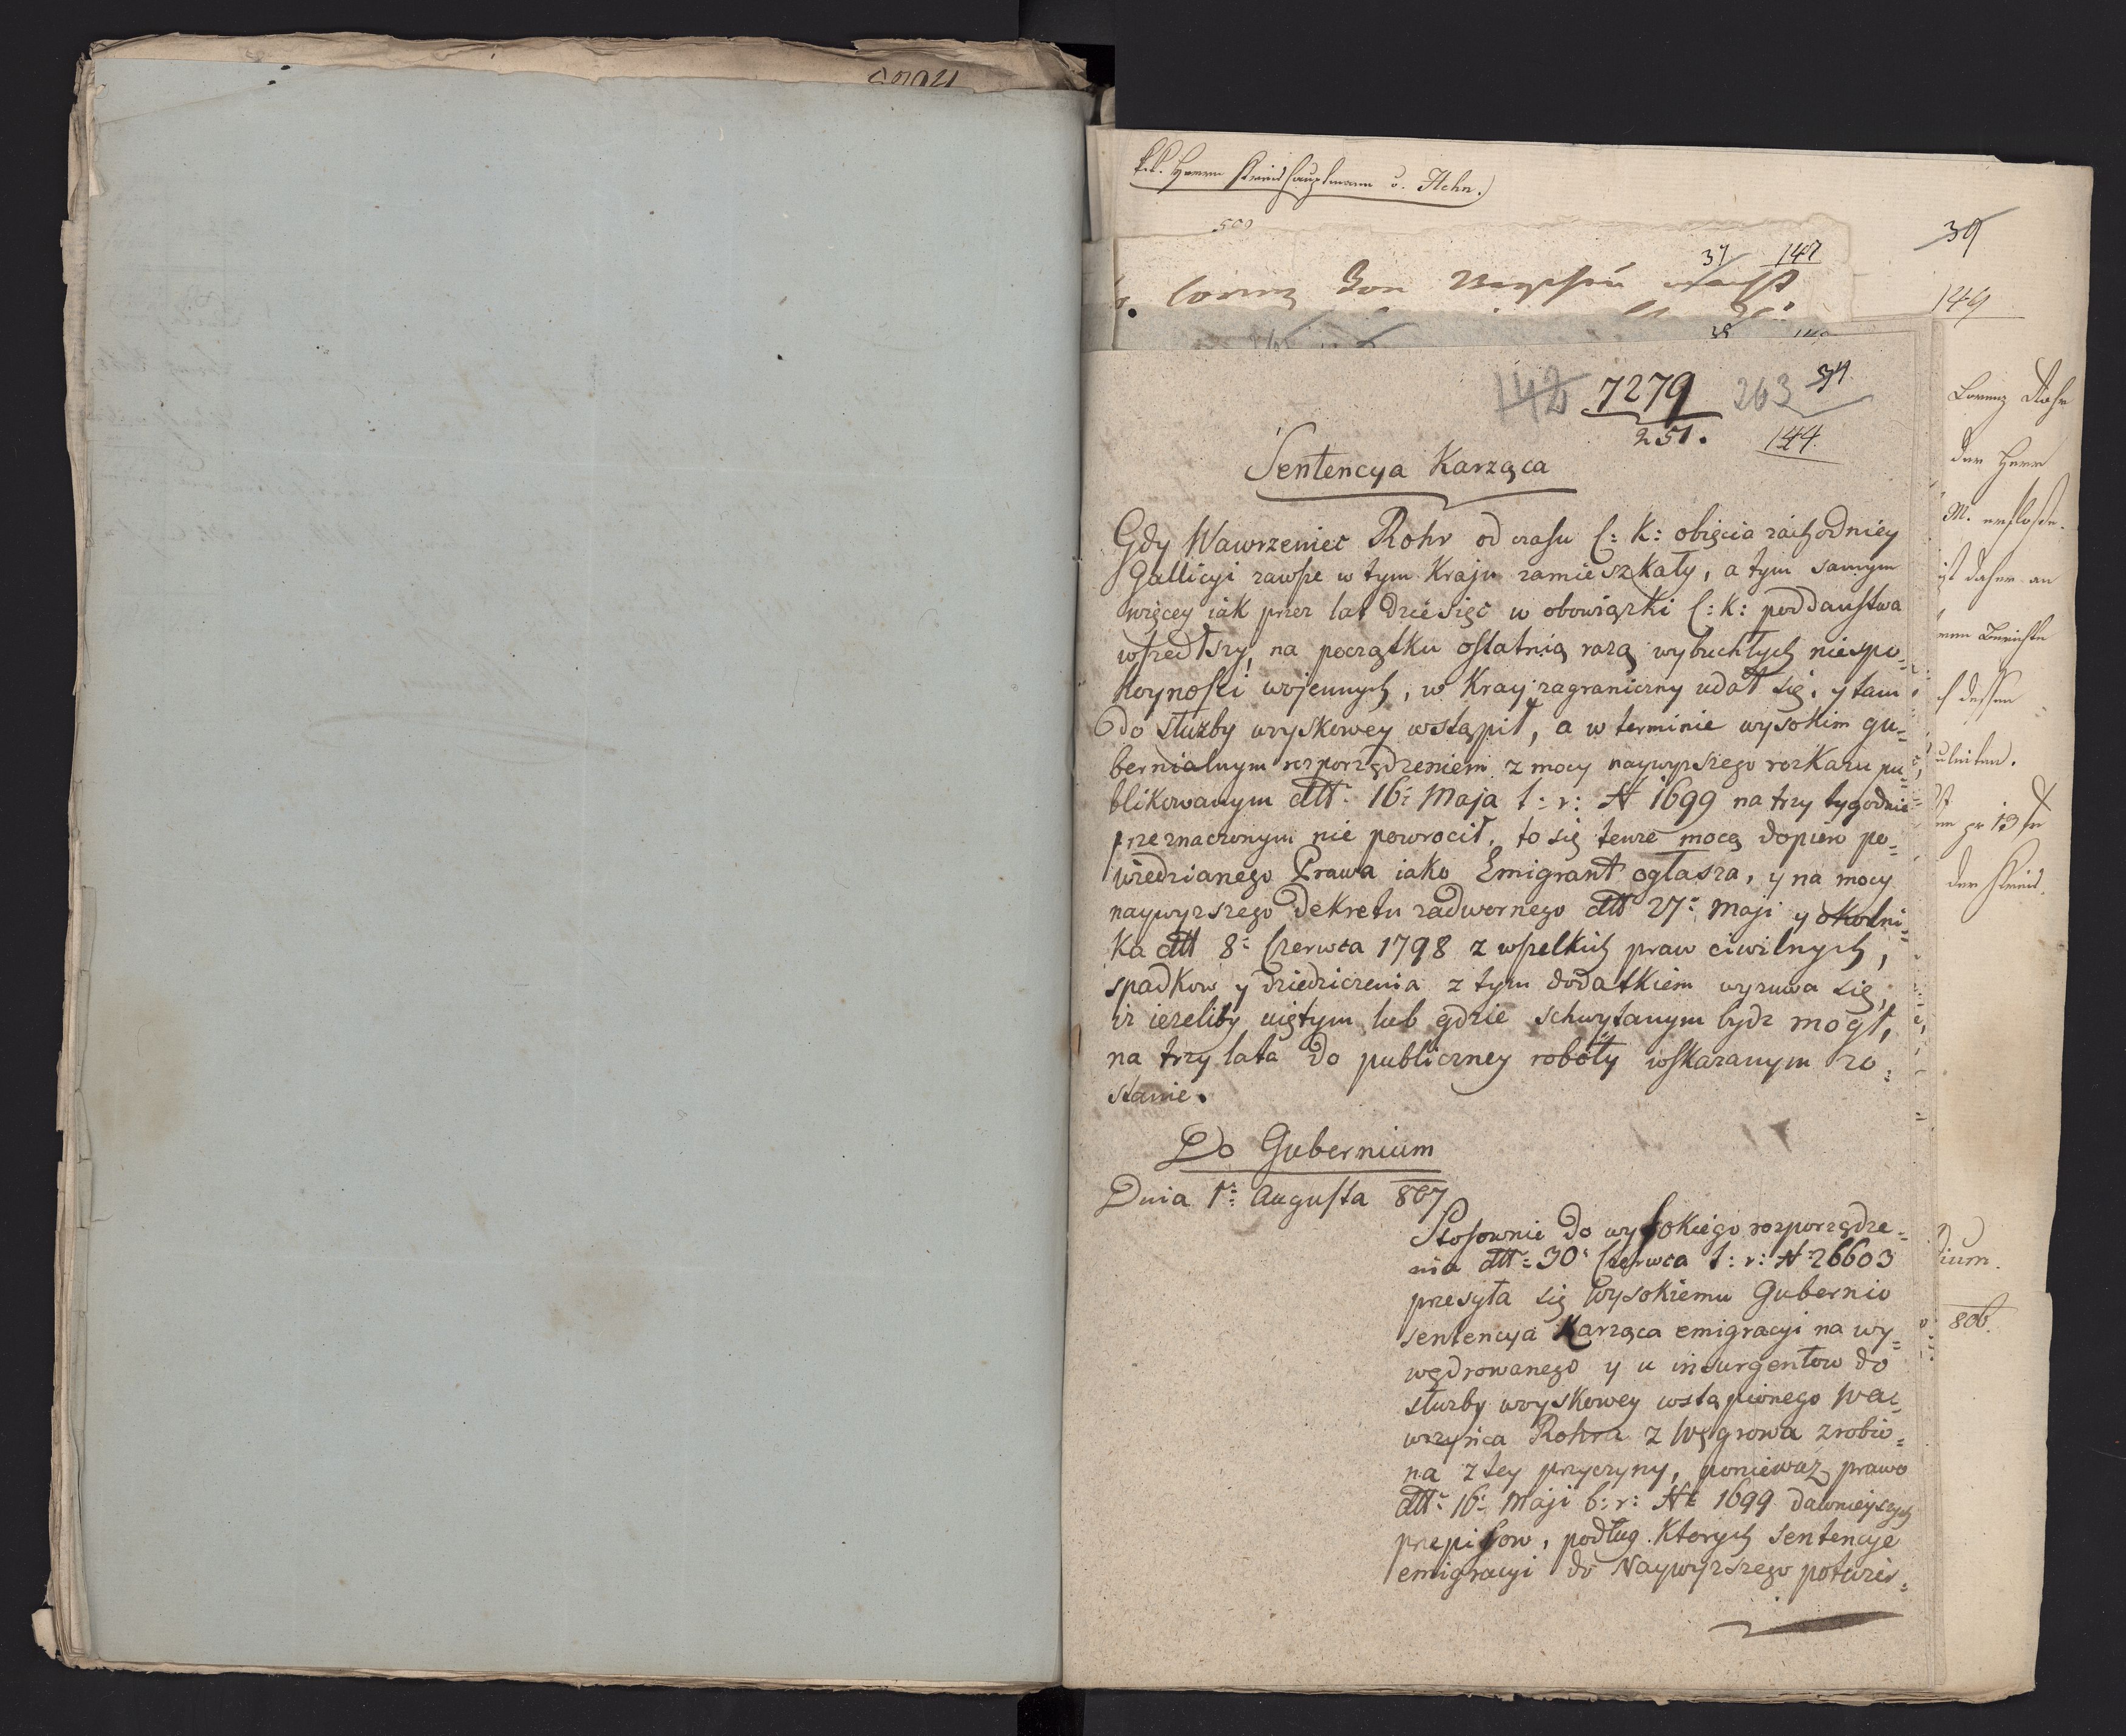 k. k. Herrn Kreishauptmann v. Hehn.)
500
39
37 147
149
Lorenz
38
142 7279 263 34
251. 144
Sentencya Karząca
Gdy Wawrzeniec Rohr od czasu C: K: obięcia zachodniey
Gallicyi zawsze w tym Kraju zamieszkały, a tym samym
więcey iak przez lat dziesięć w obowiązki C: k: poddaństwa
wszedłszy, na początku ostatnią razą wybuchłych niespo=
koyności wojennych, w Kray zagraniczny udał się, y tam
do służby woyskowey wstąpił, a w terminie wysokim gu=
bernialnym rozporządzeniem z mocy naywyższego rozkazu pu=
blikowanym dtt: 16: Maja t: r: N 1699 na trzy tygodnie
przeznaczonym nie powrocił, to się tenże mocą dopiero po=
wiedzianego Prawa iako Emigrant ogłasza, y na mocy
naywyzszego dekretu nadwornego dtt 27: Maji y okolni=
ka dtt 8: Czerwca 1798 z wszelkich praw ciwilnych,
spadkow y dziedziczenia z tym dodatkiem wyzuwa się,
iż ieżeliby uiętym lub gdzie schwytanym bydz mogł,
na trzy lata do publiczney roboty wskazanym zo=
stanie.
Do Gubernium
Dnia 1: Augusta 807
Stosownie do wysokiego rozporządze=
nia dtt: 30: Czerwca t: r: N: 26603
przesyła się Wysokiemu Gubernio
sentencya Karząca emigracyi na wy=
wędrowanego y u insurgentow do
służby woyskowey wstąpionego Wa=
wrzyńca Rohra z Węgrowa zrobio=
na z tey przyczyny, ponieważ prawo
dtt: 16: Maji b: r: N: 1699 dawnieyszych
przepisow, podług ktorych sentencye
emigracyi do Naywyzszego potwier=
Lorenz Rohr
der Herr
ist daher an
Berichte
dessen
13
der Kreis
ium.
806.